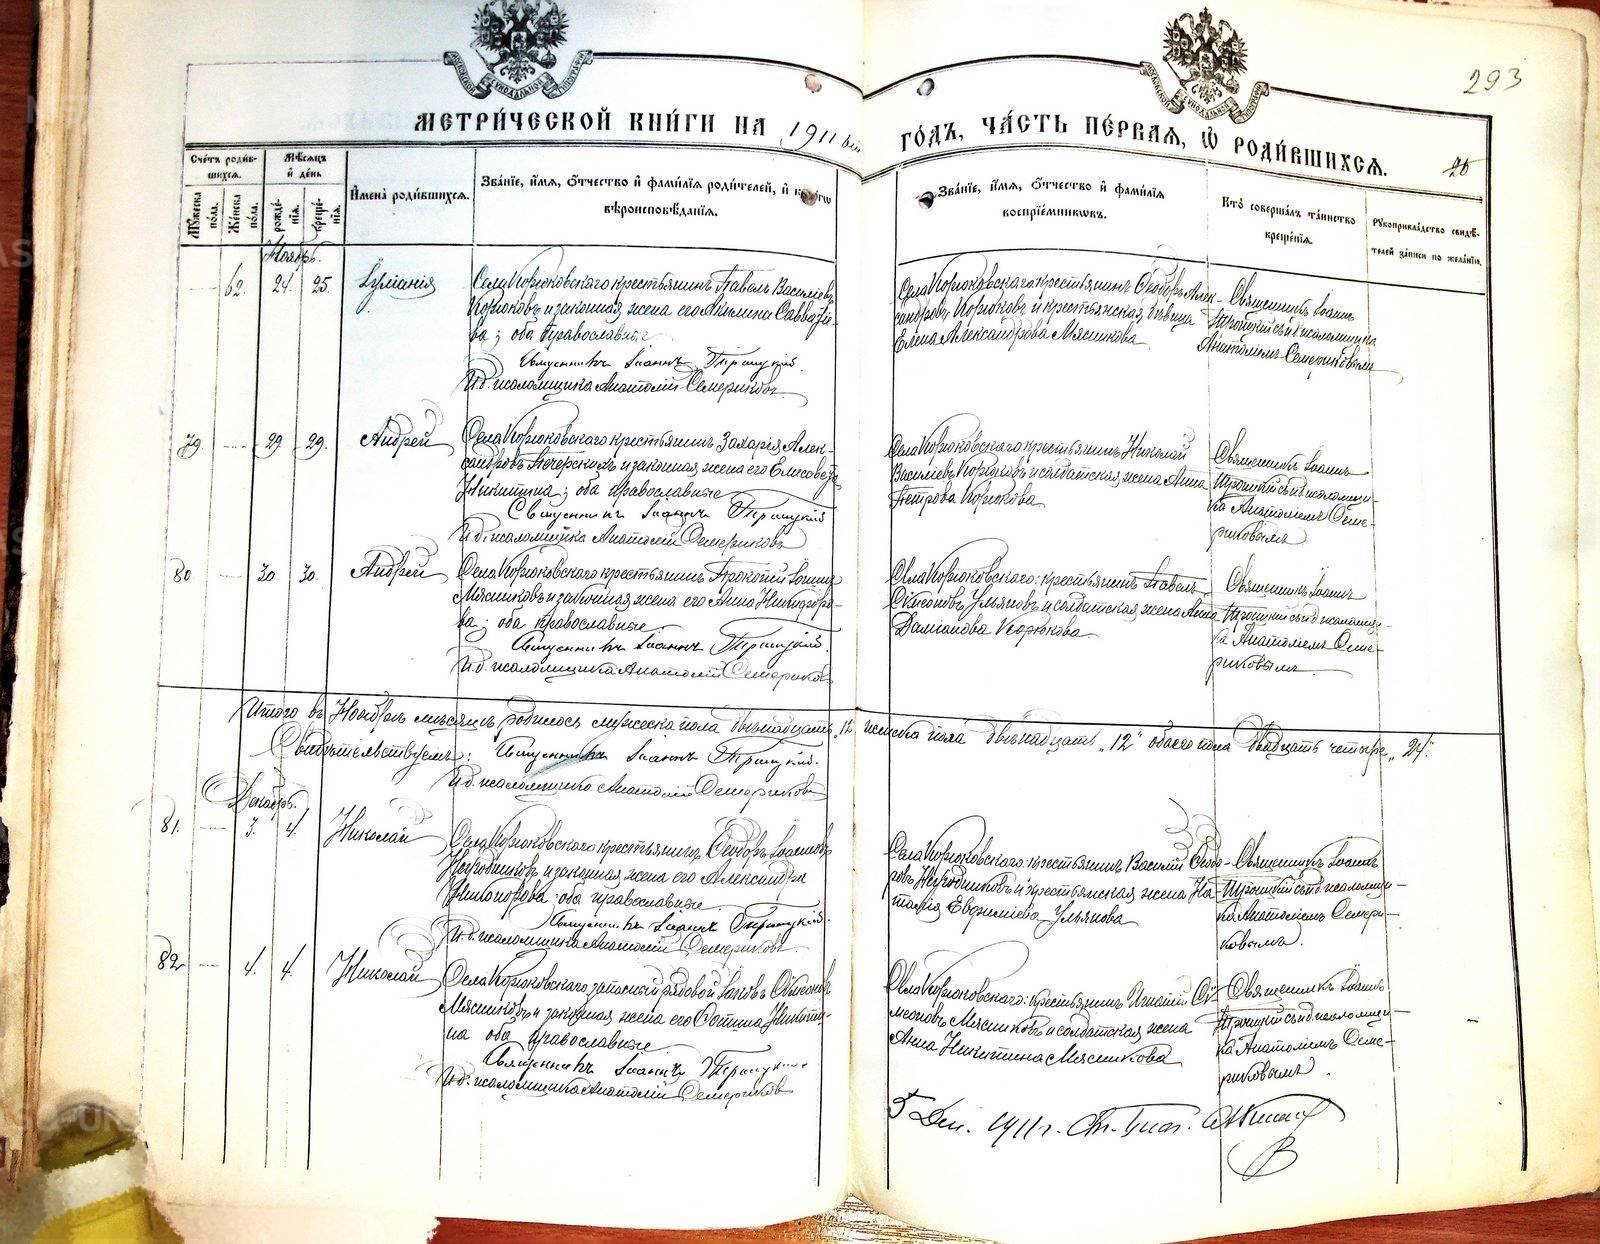 293
МОСКОВСКОЙ СѴНОДАЛЬНОЙ ТИПОГРАФІИ
МОСКОВСКОЙ СѴНОДАЛЬНОЙ ТИПОГРАФІИ
МЕТРИ́ЧЕСКОЙ КНИ́ГИ НА 1911 ый ГО́ДЪ, ЧА́СТЬ ПЕ́РВАЯ, Ѡ РОДИ́ВШИХСЯ.
Сче́тъ роди́вшихся.
Му́жеска по́ла.
Же́нска по́ла.
Мѣ́сяцъ и де́нь
рожде́нія.
креще́нія.
Имена̀ роди́вшихся.
Зва́ніе, и́мя, ѻ́тчество и фами́лія роди́телей, и како́гѡ
вѣроисповѣ́данія.
Зва́ніе, и́мя, ѻ́тчество и фами́лія
воспріе́мникѡвъ.
Кто̀ соверша́лъ та́инство
креще́нія.
Рукоприкла́дство свидѣ́-
телей за́писи по жела́нію.
Ноябрь.
62. 24. 25. Іуліанія
Села Корюковскаго крестьянинъ Павелъ Васильевъ
Корюковъ и законная жена его Саввате-
ва; оба Православные
Священникъ Іоаннъ Троицкій.
И.д. псаломщика Анатолій Семериковъ
Села Корюковскаго крестьянинъ Ѳеодоръ Алек-
сандровъ Корюковъ и крестьянская дѣвица
Елена Александрова Мясникова
Священникъ Іоаннъ
Троицкій съ и.д. псаломщика
Анатоліемъ Семериковымъ
79. 29. 29. Андрей
Села Корюковскаго крестьянинъ Захарія Алек-
сандровъ Печерскихъ и законная жена его Елисавета
Никитина; оба православные
Священникъ Іоаннъ Троицкій
И.д. псаломщика Анатолій Семериковъ
Села Корюковскаго крестьянинъ Николай
Васильевъ Корюковъ и солдатская жена Анна
Петрова Корюкова
Священникъ Іоаннъ
Троицкій съ и.д. псаломщи-
ка Анатоліемъ Семе-
риковымъ
80 30. 30. Андрей
Села Корюковскаго крестьянинъ Прокопій Іоанновъ
Мясниковъ и законная жена его Анна Никифоро-
ва; оба православные.
Священникъ Іоаннъ Троицкій.
И.д. псаломщика Анатолій Семериковъ
Села Корюковскаго: крестьянинъ Павелъ
Симеоновъ Ульяновъ и солдатская жена Анна
Даміанова Корюкова
Священникъ Іоаннъ
Троицкій съ и.д. псаломщи-
ка Анатоліемъ Семе-
риковымъ
Итого въ Ноябрѣ мѣсяцѣ родилось мужеска пола двѣнадцать „12" женска пола двѣнадцать „12" обоего пола двадцать четыре „24".
Свидѣтельствуемъ: Священникъ Іоаннъ Троицкій.
И.д. псаломщика Анатолій Семериковъ
Декабрь.
81. 3. 4. Николай
Села Корюковскаго крестьянинъ Ѳеодоръ Іоанновъ
и законная жена его Александра
Никонорова оба православные.
Священникъ Іоаннъ Троицкій.
И.д. псаломщика Анатолій Семериковъ
Села Корюковскаго: крестьянинъ Василій Ѳеодо-
ровъ и крестьянская жена На-
талія Евфиміева Ульянова
Священникъ Іоаннъ
Троицкій съ и.д. псаломщи-
ка Анатоліемъ Семери-
ковымъ.
82 4. 4. Николай
Села Корюковскаго запасный рядовой Іаковъ Симеоновъ
Мясниковъ и законная жена его Никити-
на оба православные
Священникъ Іоаннъ Троицкій
И.д. псаломщика Анатолій Семериковъ
Села Корюковскаго: крестьянинъ Игнатій Си-
меоновъ Мясниковъ и солдатская жена
Анна Никитина Мясникова
Священникъ Іоаннъ
Троицкій съ и.д. псаломщи-
ка Анатоліемъ Семе-
риковымъ.
5 Дек. 1911 г.